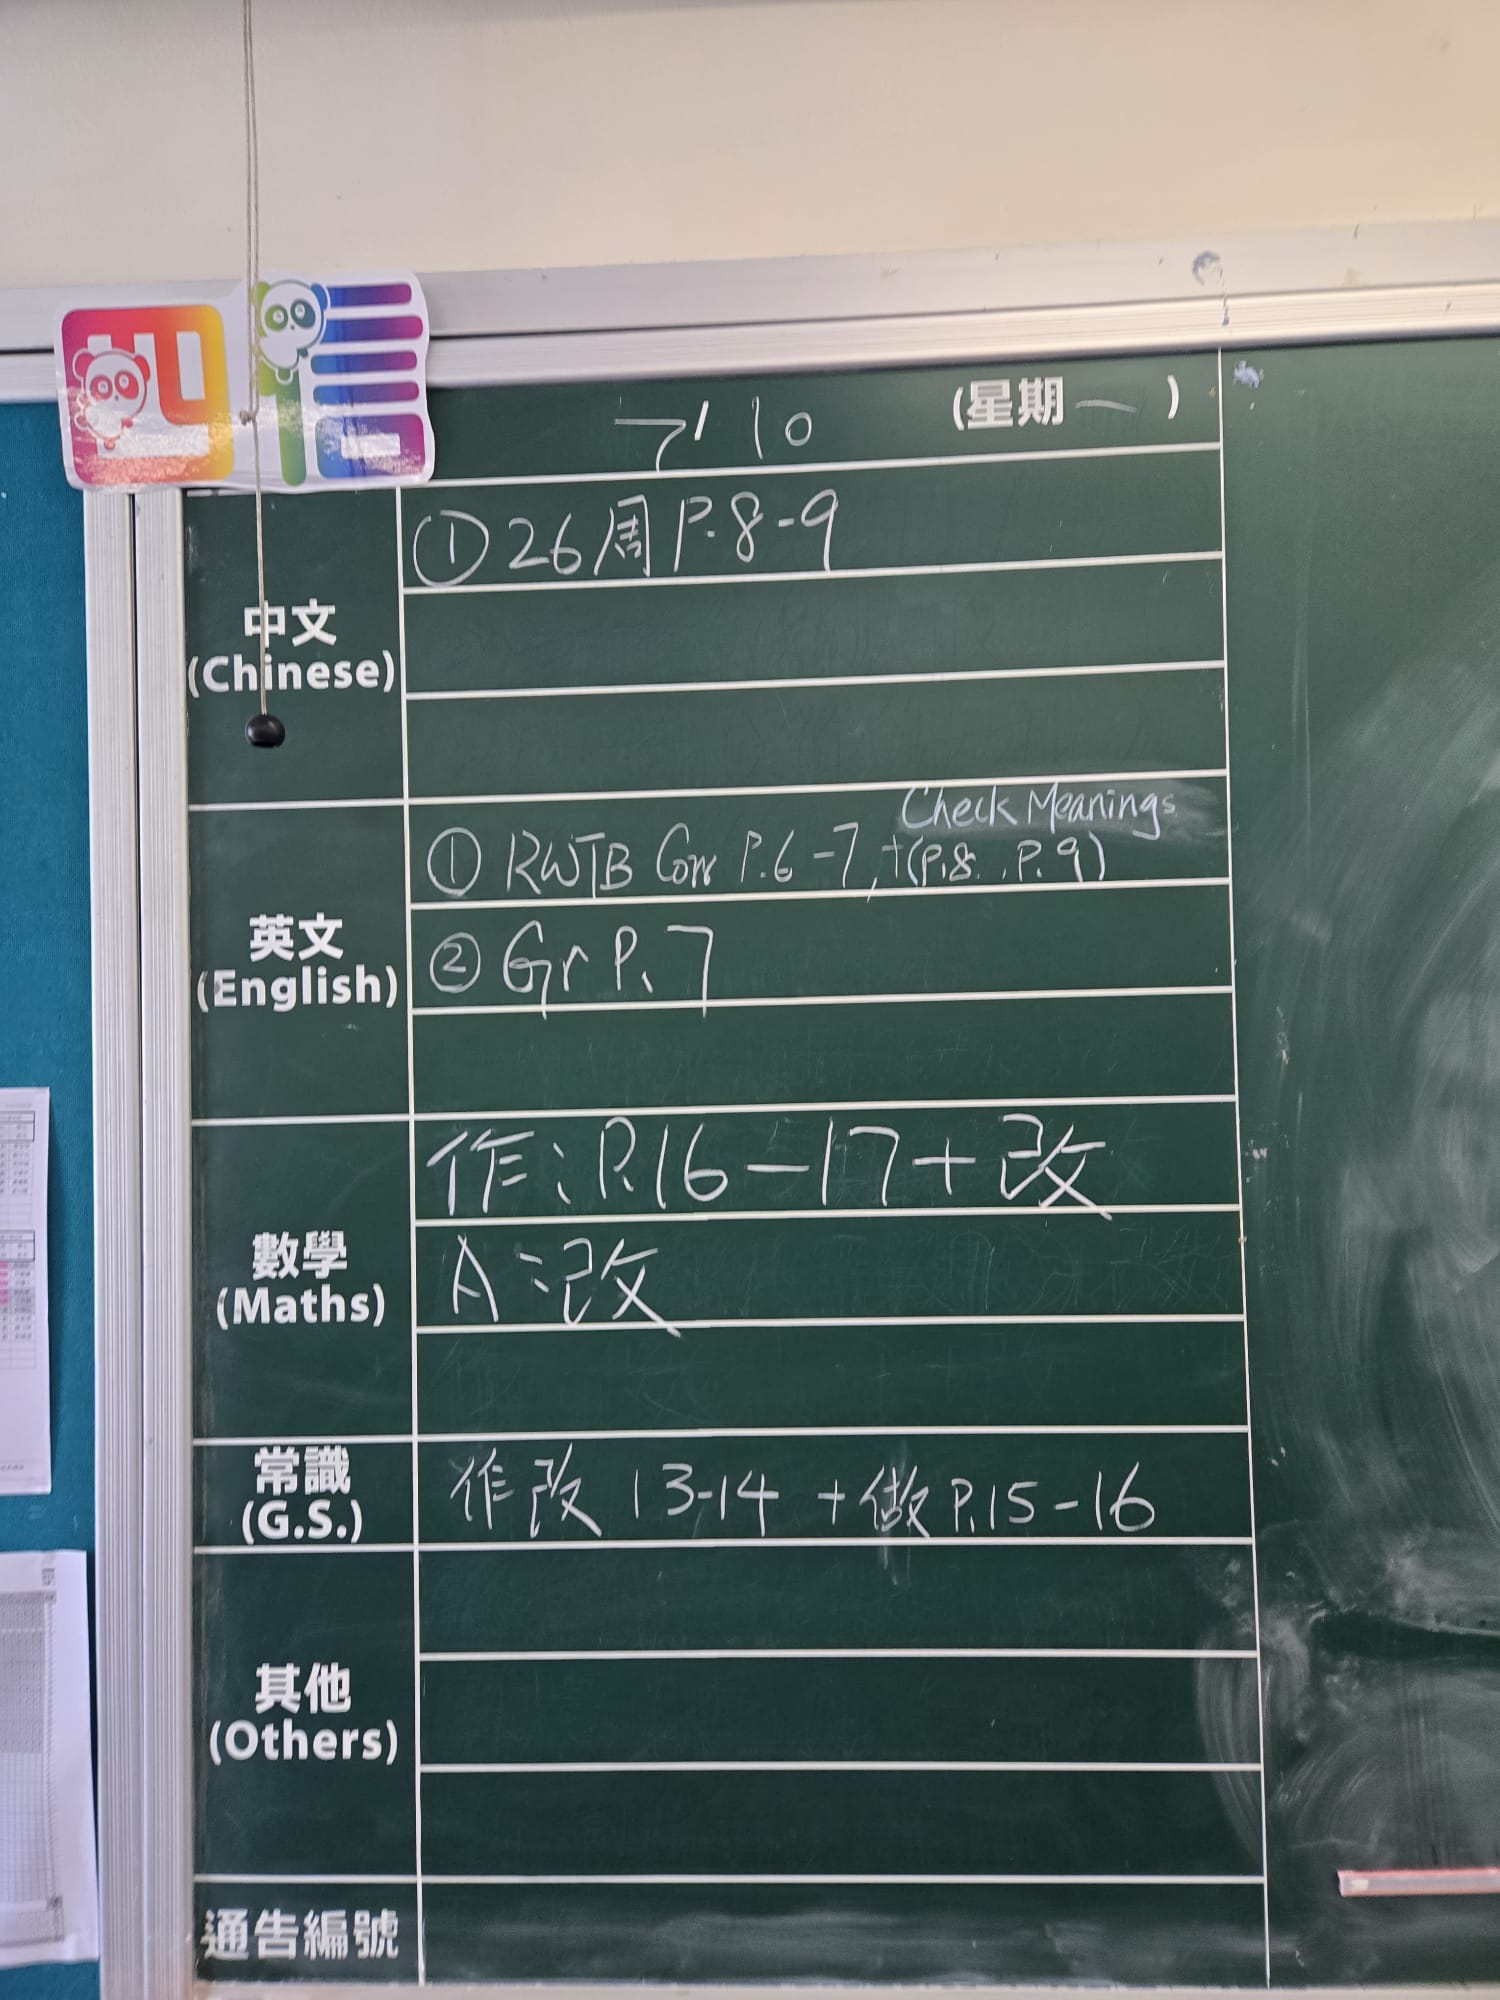 四信
7/10 (星期一)
中文
(Chinese)
① 26周 P.8-9
英文
(English)
Check Meanings
① RWTB Corr P.6-7, +(P.8, P.9)
② Gr P.7
數學
(Maths)
作:P.16-17+改
A:改
常識
(G.S.)
作改 13-14 +做P.15-16
其他
(Others)
通告編號